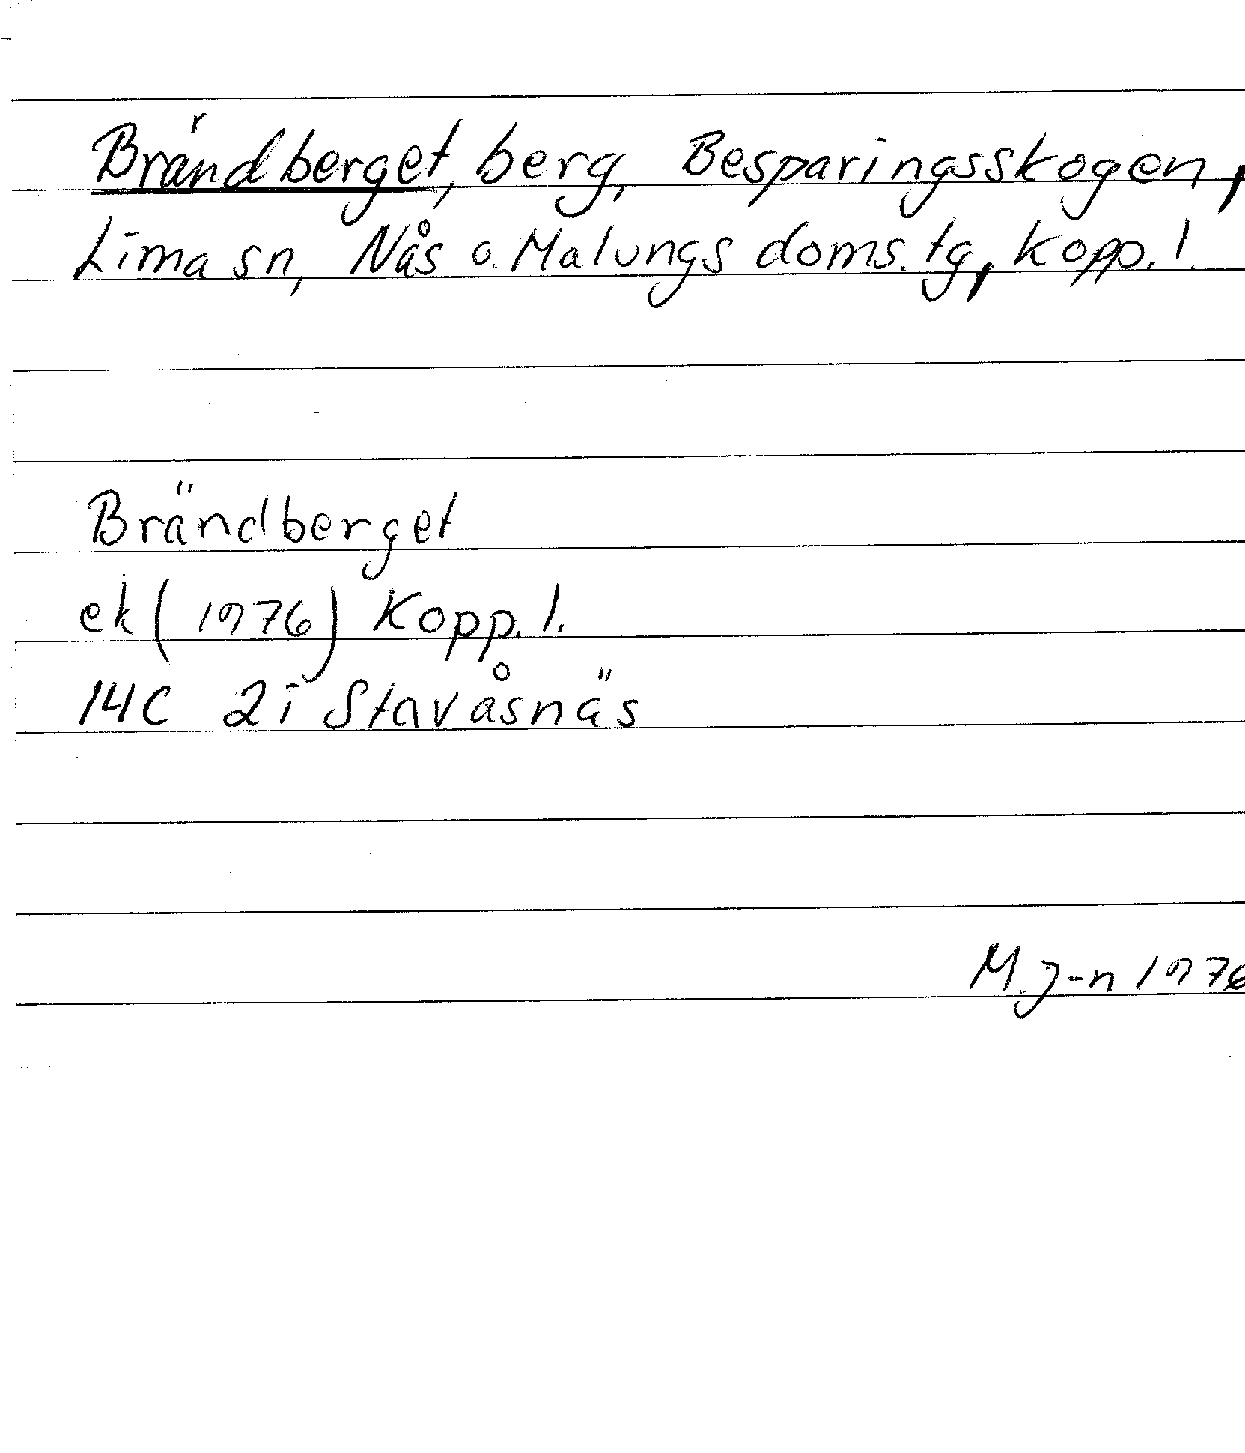 Brändberget, berg, Besparingsskogen,
Lima sn, Nås o. Malungs doms. tg, Kopp. l.
Brändberget
ek (1976) Kopp. l.
14C 2i Stavåsnäs
M. J-n 1976